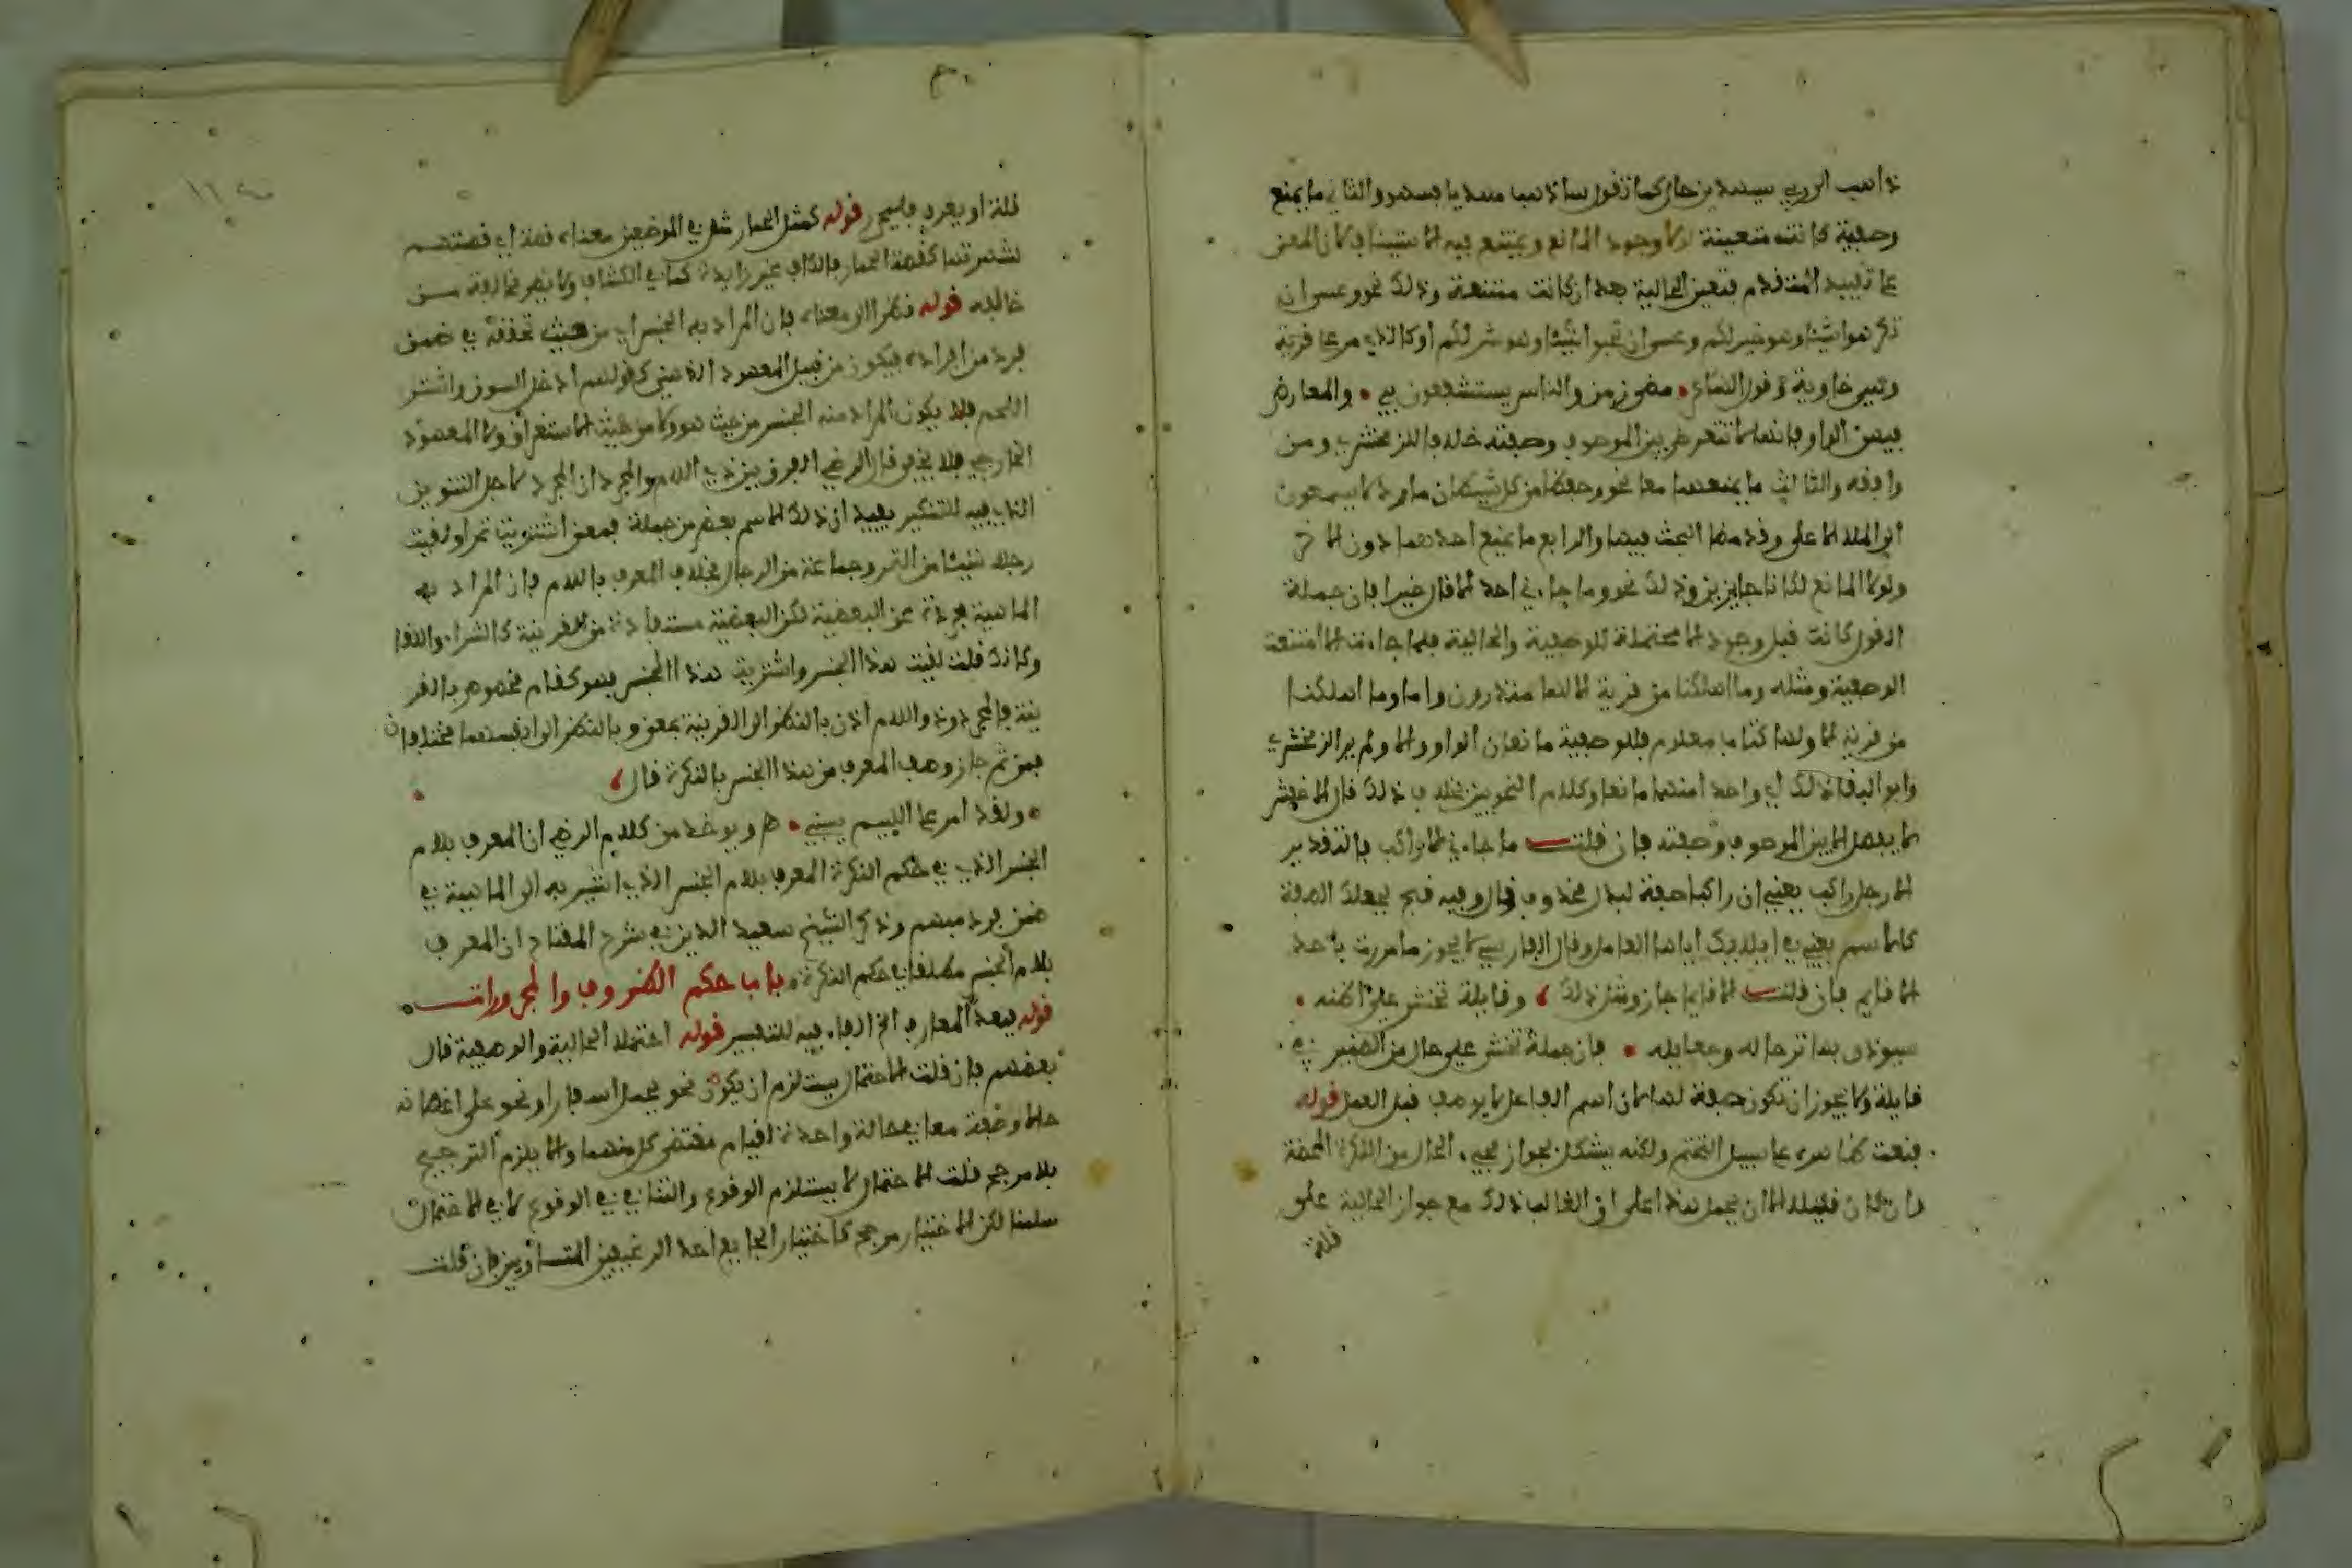 ذاهب الى ربي سيهدين حال كما تقول ساذهب مهديا فسهو والثاني ما يمنع
وصفية كانت متعينة لولا وجود المانع ويمتنع فيه الاستينا فلان المعنى
على تقييد المتقدم فتعين الحالية بعد ان كانت ممتنعة وذلك نحو وعسى ان
تكرهوا شيئا وهو خير لكم وعسى ان تحبوا شيئا وهو شر لكم او كالذي مر على قرية
وهي خاوية وقول الشاعر مضى زمن والناس يستشفعون بي والمعارض
فيهن الواو فانها لا تعترض بين الموصوف وصفته خلافا للزمخشري ومن
وافقه والثالث ما يمنعهما معا نحو وحفظا من كل شيطان مارد لا يسمعون
الى الملا الاعلى وقد مضى البحث فيها والرابع ما يمنع احدهما دون الاخر
ولولا المانع لكانا جايزين وذلك نحو وما جاءني احد الا قال خيرا فان جملة
القول كانت قبل وجود الا محتملة للوصفية والحالية فلما جاءت الا امتنعت
الوصفية ومثله وما اهلكنا من قرية الا لها منذرون واما وما اهلكنا
من قرية الا ولها كتاب معلوم فللوصفية مانعان الواو والا ولم ير الزمخشري
وابو البقا ذلك اي واحدا منهما مانعا وكلام النحويين بخلاف ذلك قال الاخفش
لا يفصل الا بين الموصوف وصفته فان قلت ما جاءني الا راكب فالتقدير
الا رجل راكب يعني ان راكبا صفة لبدل محذوف قال وفيه قبح لجعلك الصفة
كالاسم يعني في ايلايك اياها العامل وقال الفارسي لا يجوز ما مررت باحد
الا قايم فان قلت الا قايما جاز ومثل ذلك وقايلة تخشى علي اظنه
سيودي به ترحاله وجعايله فان جملة تخشى علي حال من الضمير في
قايلة ولا يجوز ان تكون صفة لها لان اسم الفاعل لا يوصف قبل العمل قوله
فنعت ظاهره على سبيل التحتم ولكنه يشكل بجواز مجيء الحال من النكرة المحضة
وان كان قليلا الا ان يحمل هذا على ان الغالب ذلك مع جواز الحالية على
قلة
قلة او يفرق فليحرر قوله كمثل الحمار مثل في الموضعين معناه قصة اي قصتهم
لشهرتها كقصة الحمار فالكاف غير زايدة كما في الكشاف ولا يضر مخالفة من
خالفه قوله نظرا الى معناه فان المراد به الجنس اي من حيث تحققه في ضمن
فرد من افراده فيكون من قبيل المعهود الذهني كقولهم ادخل السوق واشتر
اللحم فلا يكون المراد منه الجنس من حيث هو ولا من حيث الاستغراق ولا المعهود
الخارجي فلا يخفى قال الرضي الفرق بين ذي اللام والمجرد ان المجرد لاجل التنوين
الذي فيه للتنكير يفيد ان ذلك الاسم بعض من جملة فمعنى اشتريت تمرا ولقيت
رجلا شيئا من التمر وجماعة من الرجال بخلاف المعرف باللام فان المراد به
الماهية مجردة عن البعضية لكن البعضية مستفادة من القرينة كالشراء واللقا
وكانك قلت لقيت هذا الجنس واشتريت هذا الجنس فهو كعام مخصوص بالقر
ينة فالمجرد وذو اللام اذن بالنظر الى القرينة بمعنى وبالنظر الى انفسهما مختلفان
فمن ثم جاز وصف المعرف من هذا الجنس بالنكرة قال
ولقد امر على اللئيم يسبني هـ ويوخذ من كلام الرضي ان المعرف بلام
الجنس الذي في حكم النكرة المعرف بلام الجنس الذي اشير به الى الماهية في
ضمن فرد مبهم وذكر الشيخ سعد الدين في شرح المفتاح ان المعرف
بلام الجنس مطلقا في حكم النكرة باب حكم الظروف والمجرورات
قوله فبعد المعارف الخ الفاء فيه للتفسير قوله احتملا الحالية والوصفية قال
بعضهم فان قلت الاحتمال يستلزم ان يكون نحو يحمل اسفارا ونحو على اغصانه
حالا وصفة معا في حالة واحدة لقيام مقتضى كل منهما والا يلزم الترجيح
بلا مرجح قلت الاحتمال لا يستلزم الوقوع والتنافي في الوقوع لا في الاحتمال
سلمنا لكن الاختيار مرجح كاختيار الجايع احد الرغيفين المتساويين فان قلت